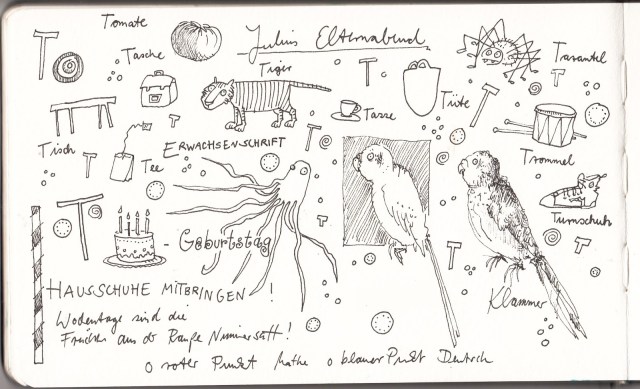 Tomate
T
Tasche
Julius Elternabend
Tiger
T
Tarantel
T
Tüte
T
Tasse
Tisch
T
T
Tee
ERWACHSENSCHRIFT
T
Trommel
T
T
- Geburtstag
T
Turnschuh
T
T
HAUSSCHUHE MITBRINGEN !
Klammer
sind die
aus der Raupe Nimmersatt!
o roter Punkt Mathe o blauer Punkt Deutsch